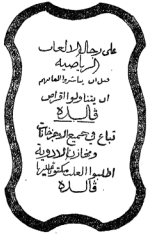 على رجال الالعاب
الرياضيه
قبل ان يباشروا العابهم
ان يتناولوا اقراص
ڤالده
تباع في جميع الاجزاخانات
ومخازن الادوية
اطلبوا العلب مكتوب عليها
ڤالده